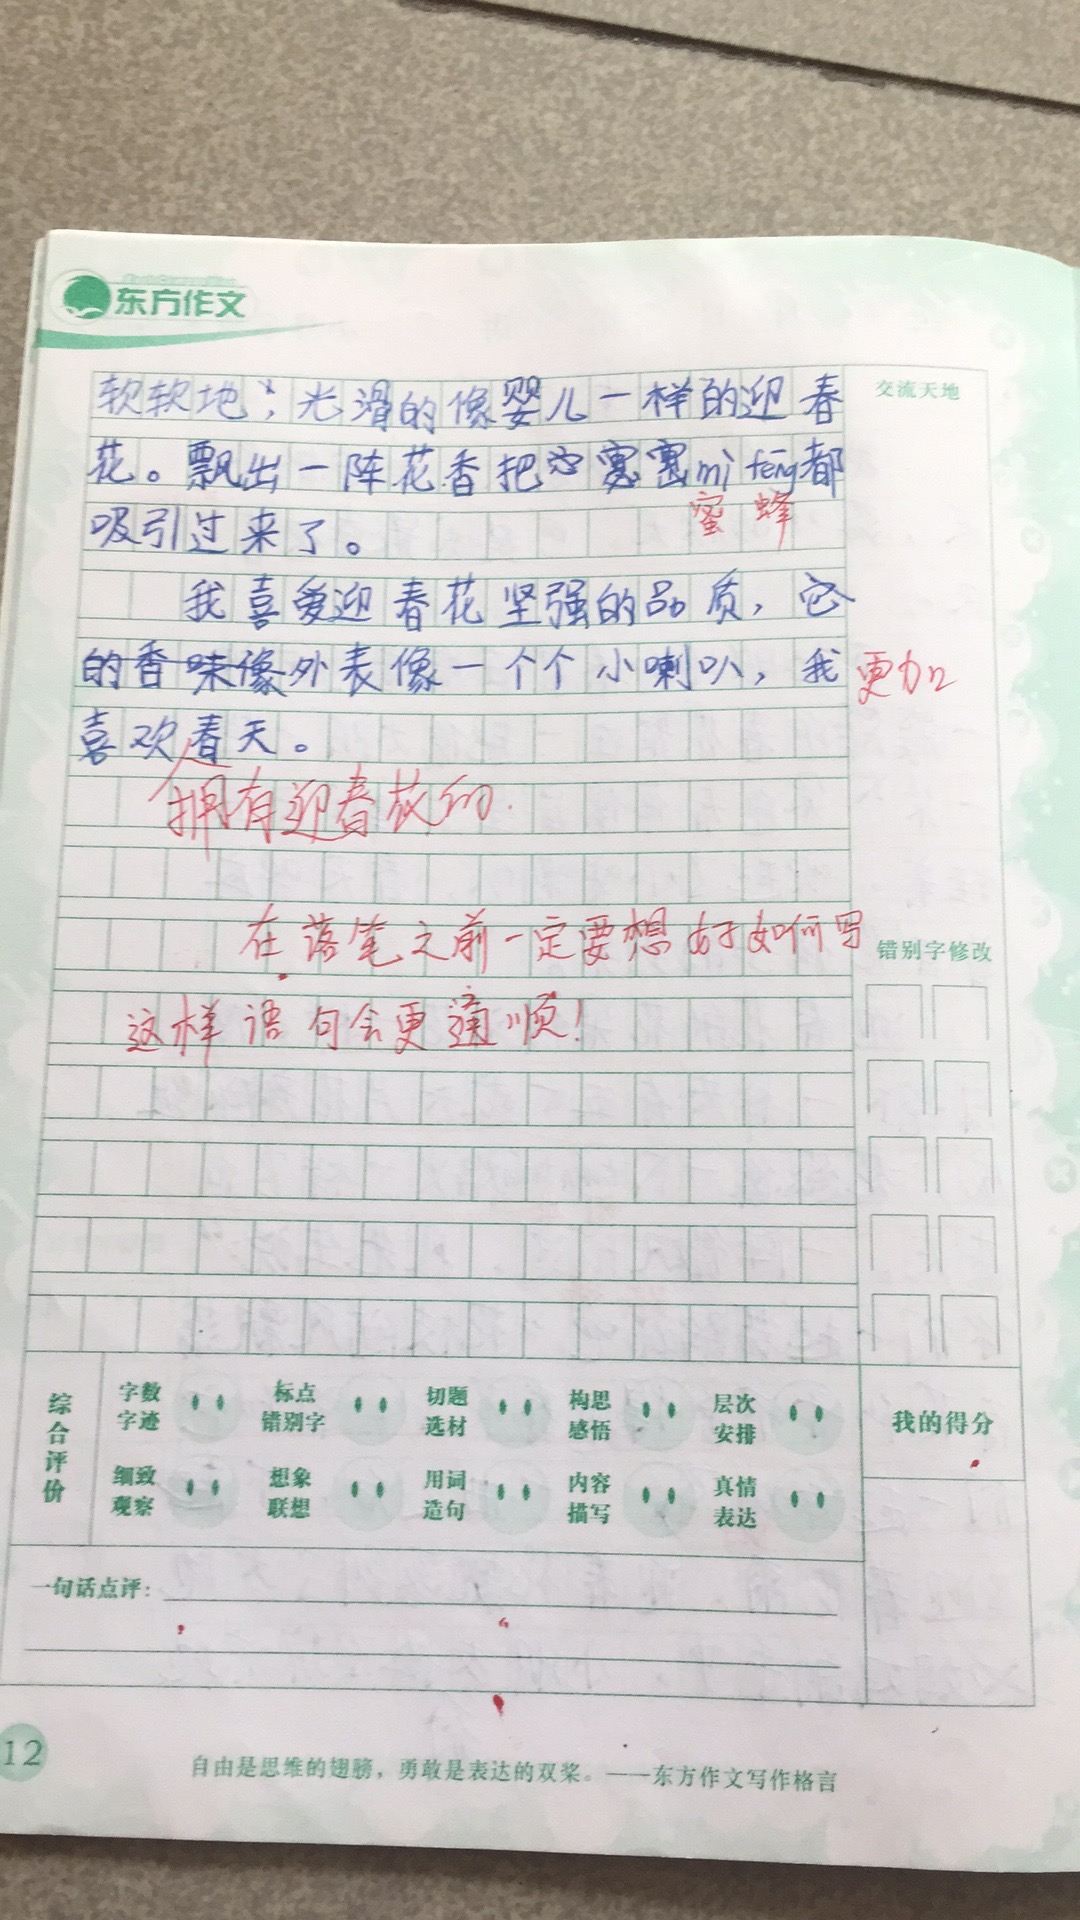 东方作文
交流天地
软软地，光滑的像婴儿一样的迎春
花。飘出一阵花香把mì fēng都
蜜蜂
吸引过来了。
我喜爱迎春花坚强的品质，它
的香味像外表像一个个小喇叭，我
更加
喜欢春天。
拥有迎春花的.
在落笔之前一定要想好如何写
错别字修改
这样语句会更通顺！
综合评价
字数字迹
标点错别字
切题选材
构思感悟
层次安排
我的得分
细致观察
想象联想
用词造句
内容描写
真情表达
一句话点评：
12
自由是思维的翅膀，勇敢是表达的双桨。——东方作文写作格言